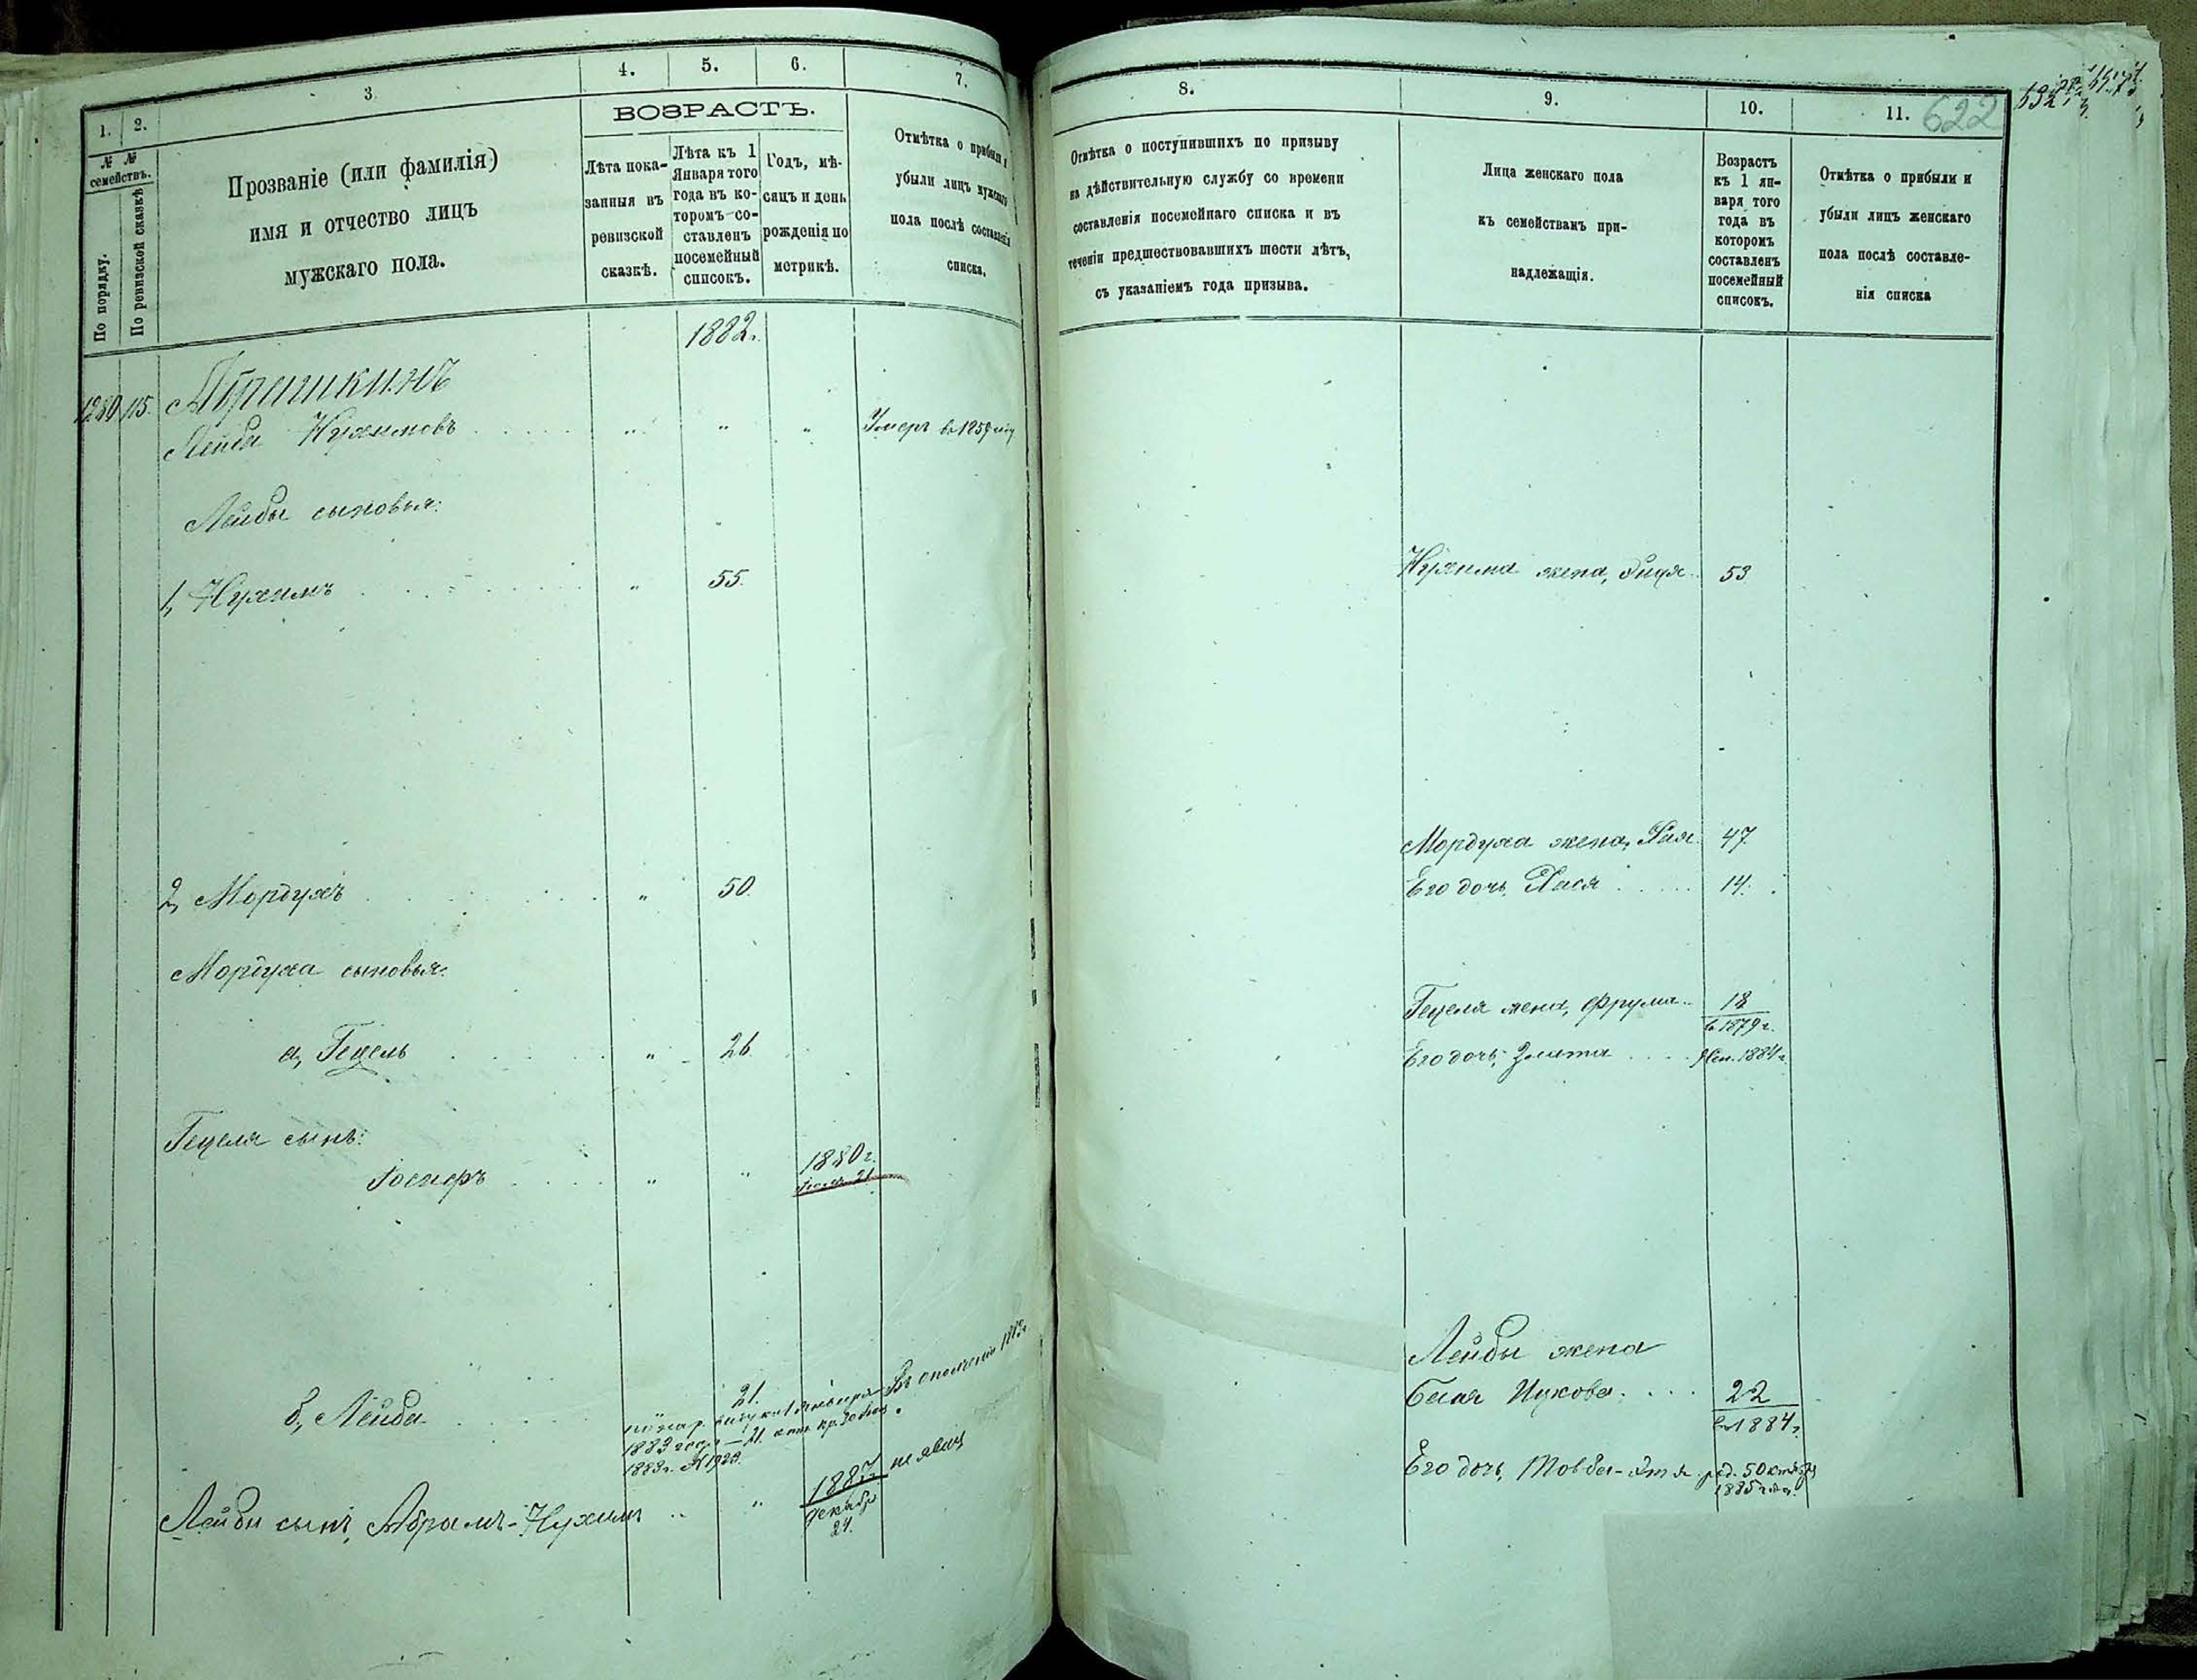 1.
2.
3
4.
5.
6.
7.
№ №
семействъ.
По порядку.
По ревизской сказкѣ
Прозваніе (или фамилія)
имя и отчество лицъ
мужскаго пола.
ВОЗРАСТЪ.
Лѣта пока-
занныя въ
ревизской
сказкѣ.
Лѣта къ 1
Января того
года въ ко-
торомъ со-
ставленъ
посемейный
списокъ.
Годъ, мѣ-
сяцъ и день
рожденія по
метрикѣ.
Отмѣтка о прибыли и
убыли лицъ мужскаго
пола послѣ составленія
списка.
1882.
1280 115.
Лейба Нухимовъ
Умеръ въ 1859 году
Лейбы сыновья:
1, Нухимъ " 55.
2, Мордухъ " 50.
Мордуха сыновья:
а, Гецель " 26.
Гецеля сынъ:
" " 1880 г.
21
б, Лейба 21.
1883 г. № 1929.
Лейбы сынъ, Абрамъ-Нухимъ " 1887
декабр
24.
8.
9.
10.
11.
622
Отмѣтка о поступившихъ по призыву
на дѣйствительную службу со времени
составленія посемейнаго списка и въ
теченіи предшествовавшихъ шести лѣтъ,
съ указаніемъ года призыва.
Лица женскаго пола
къ семействамъ при-
надлежащія.
Возрастъ
къ 1 ян-
варя того
года въ
которомъ
составленъ
посемейный
списокъ.
Отмѣтка о прибыли и
убыли лицъ женскаго
пола послѣ составле-
нія списка
Нухима жена, 53
Мордуха жена, 47
Его дочь, Хася 14.
Гецеля жена, Фрума 18
въ 1879 г.
Его дочь, Злата 1884 г.
Лейбы жена
Ицкова 22
въ 1884 г.
Его дочь, Товба- род. 5 октября
1885 года.